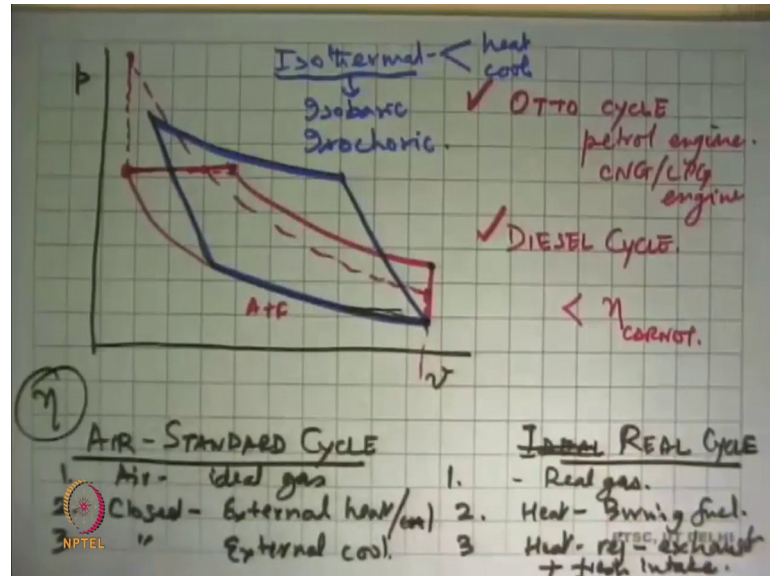 p
Isothermal - < heat
cool
Isobaric
Isochoric.
✓ OTTO CYCLE
petrol engine.
CNG/LPG
engine
✓ DIESEL CYCLE.
A+F
< η CARNOT.
v
η
AIR - STANDARD CYCLE
1. Air - ideal gas
2. Closed - External heat/
3 " External cool.
NPTEL
IDEAL REAL CYCLE
1. - Real gas.
2. Heat - Burning fuel.
3 Heat rej - exhaust
+ fresh intake.